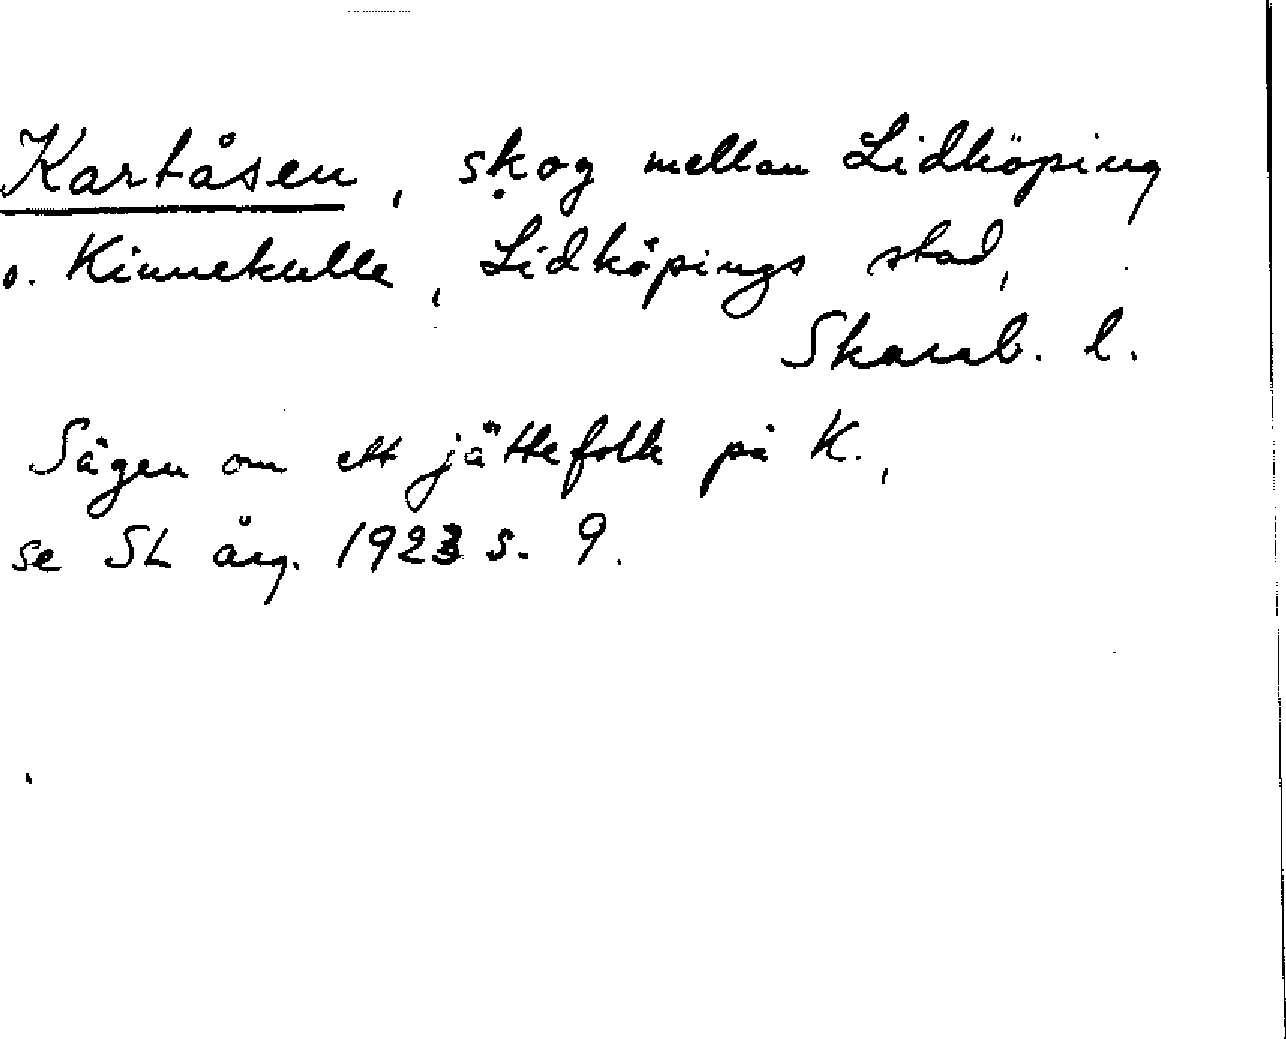 Kartåsen, skog mellan Lidköping
o. Kinnekulle, Lidköpings stad,
Skarab. l.
Sägen om ett jättefolk på K.,
se SL årg. 1923 s. 9.